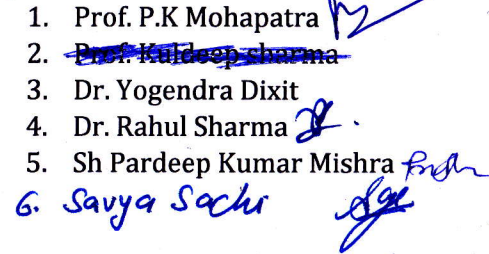 1. Prof. P.K Mohapatra
2. Prof. Kuldeep sharma
3. Dr. Yogendra Dixit
4. Dr. Rahul Sharma
5. Sh Pardeep Kumar Mishra
6. Savya Sachi